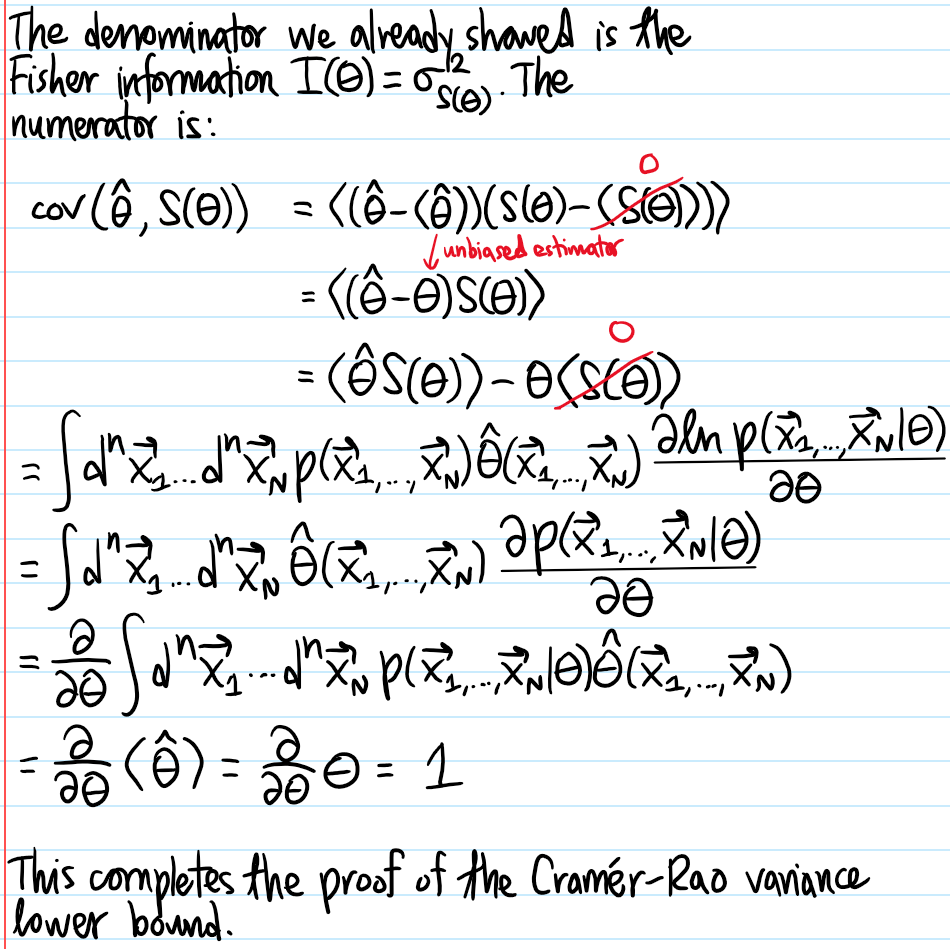 The denominator we already showed is the
Fisher information I(θ) = σ²_{S(θ)}. The
numerator is:
cov(θ̂, S(θ)) = ⟨(θ̂-⟨θ̂⟩)(S(θ)-⟨S(θ)⟩)⟩ 0
↓ unbiased estimator
= ⟨(θ̂-θ)S(θ)⟩
= ⟨θ̂ S(θ)⟩ - θ⟨S(θ)⟩ 0
= ∫ dⁿx⃗₁...dⁿx⃗_N p(x⃗₁,...,x⃗_N) θ̂(x⃗₁,...,x⃗_N) ∂ln p(x⃗₁,...,x⃗_N|θ)/∂θ
= ∫ dⁿx⃗₁...dⁿx⃗_N θ̂(x⃗₁,...,x⃗_N) ∂p(x⃗₁,...,x⃗_N|θ)/∂θ
= ∂/∂θ ∫ dⁿx⃗₁...dⁿx⃗_N p(x⃗₁,...,x⃗_N|θ) θ̂(x⃗₁,...,x⃗_N)
= ∂/∂θ ⟨θ̂⟩ = ∂/∂θ θ = 1
This completes the proof of the Cramér-Rao variance
lower bound.